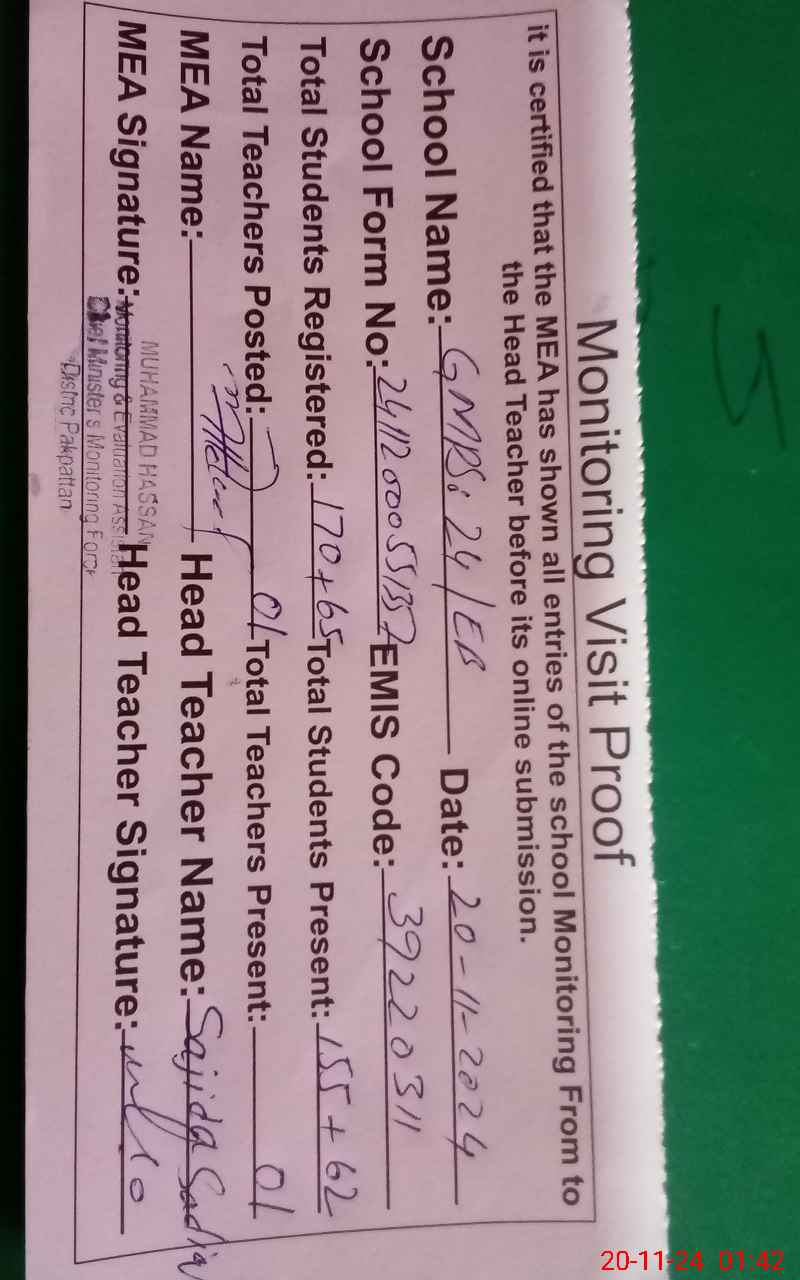 Monitoring Visit Proof
it is certified that the MEA has shown all entries of the school Monitoring From to
the Head Teacher before its online submission.
School Name: GMPS: 24/EB Date: 20-11-2024
School Form No: EMIS Code: 39220311
Total Students Registered: 170+65 Total Students Present: 155+62
Total Teachers Posted: 01 Total Teachers Present: 01
MEA Name: Head Teacher Name: Sajida Sadiq
MEA Signature: Head Teacher Signature:
MUHAMMAD HASSAN
Monitoring & Evaluation Assistant
Chief Minister's Monitoring Force
District Pakpattan
5
20-11-24 01:42